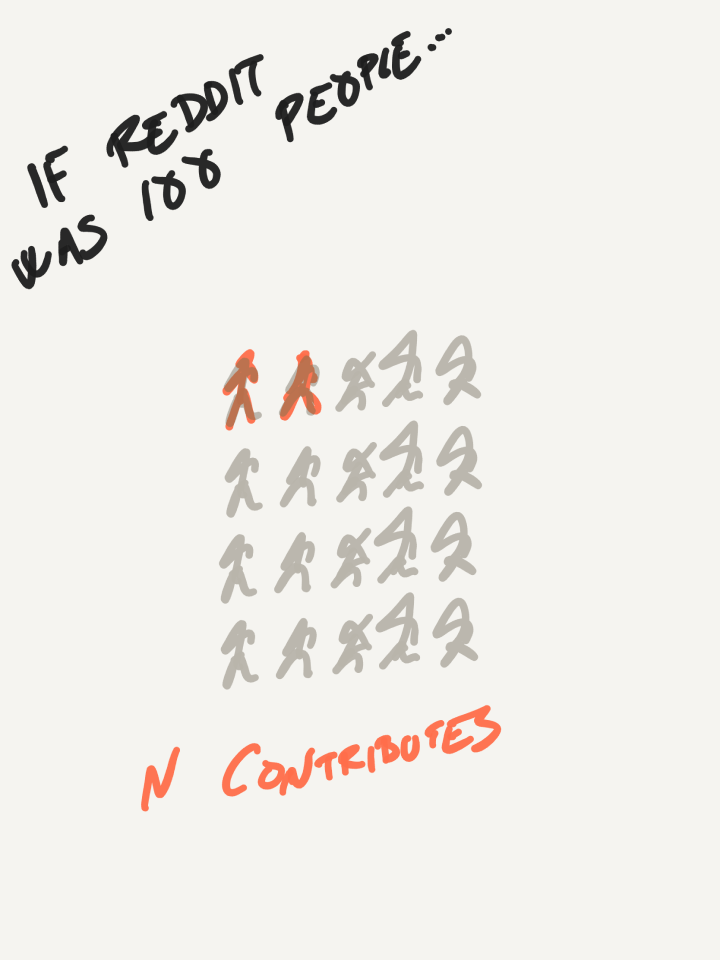 IF REDDIT
WAS 100 PEOPLE...
N CONTRIBUTES